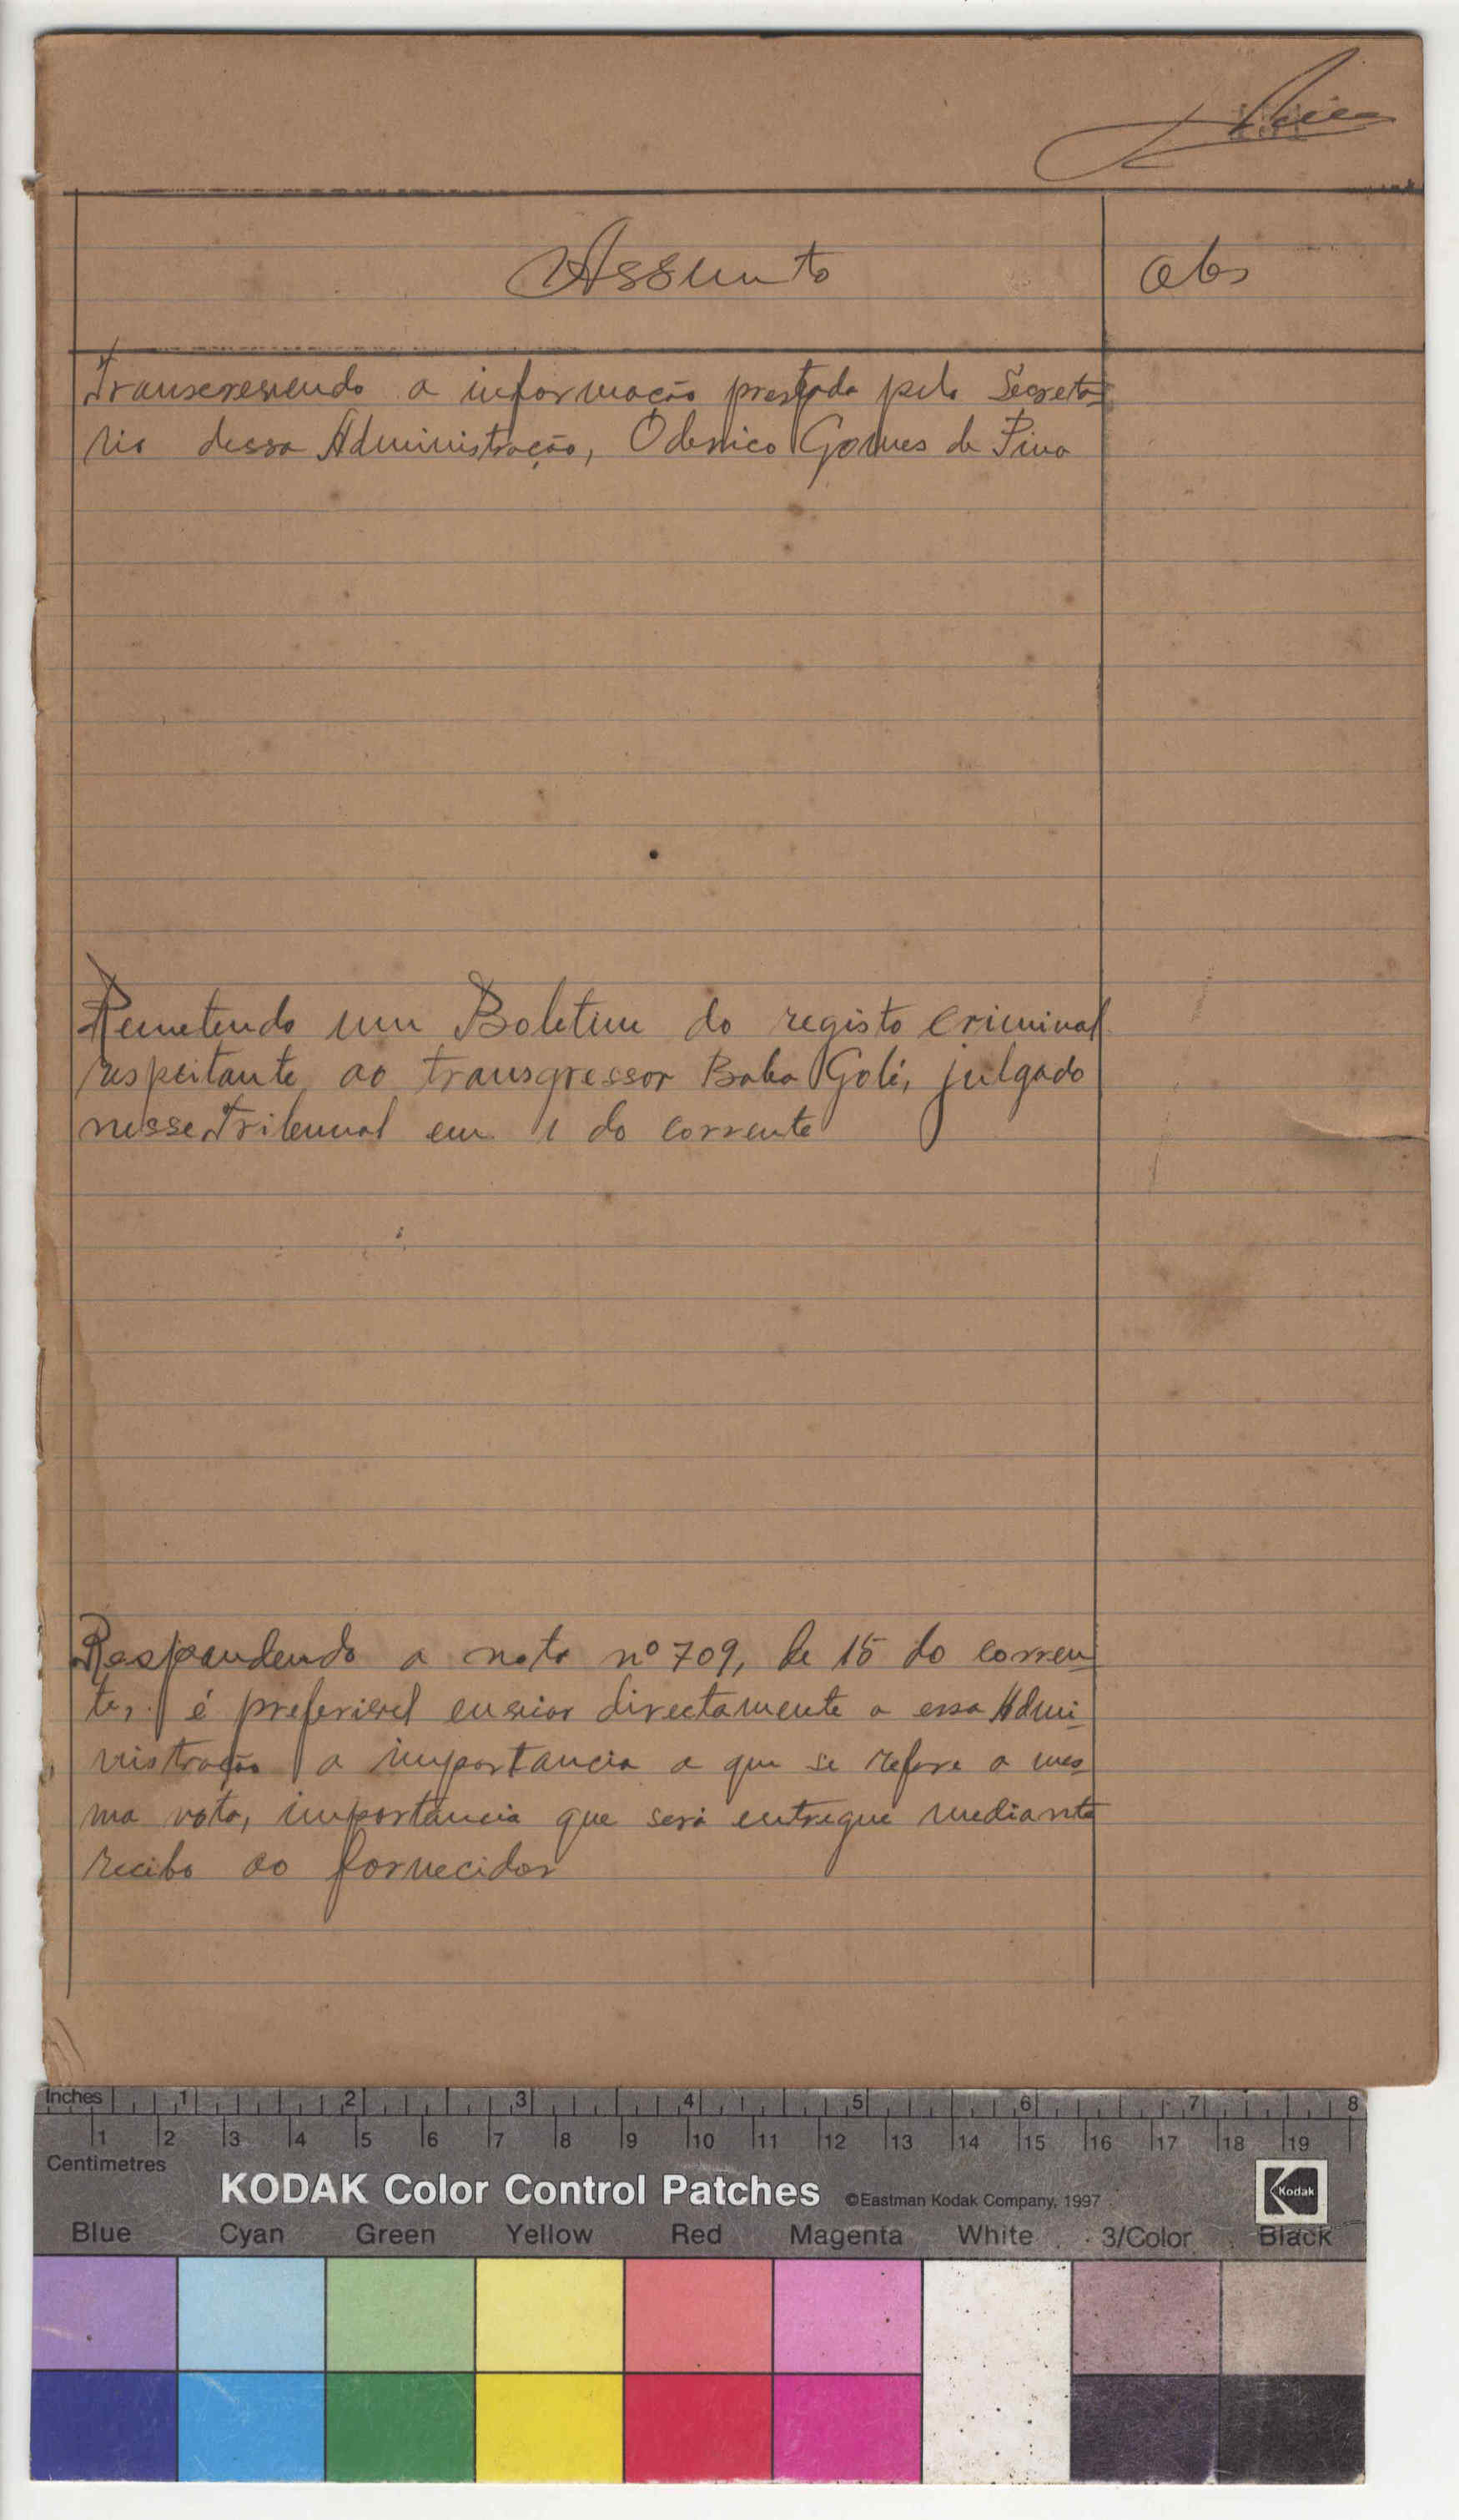 Assunto
Obs
Transcrevendo a informação prestada pelo Secretá-
rio dessa Administração, Oderico Gomes de Pina
Remetendo um Boletim do registo criminal
respeitante ao transgressor Baba Golé, julgado
nesse Tribunal em 1 do corrente
Respondendo a nota nº 709, de 15 do corren-
te, é preferivel enviar directamente a essa Admi-
nistração a importancia a que se refere a mes-
ma nota, importância que será entregue mediante
recibo ao fornecidor
Inches 1 2 3 4 5 6 7 8
1 2 3 4 5 6 7 8 9 10 11 12 13 14 15 16 17 18 19
Centimetres
KODAK Color Control Patches ©Eastman Kodak Company, 1997 Kodak
Blue Cyan Green Yellow Red Magenta White 3/Color Black